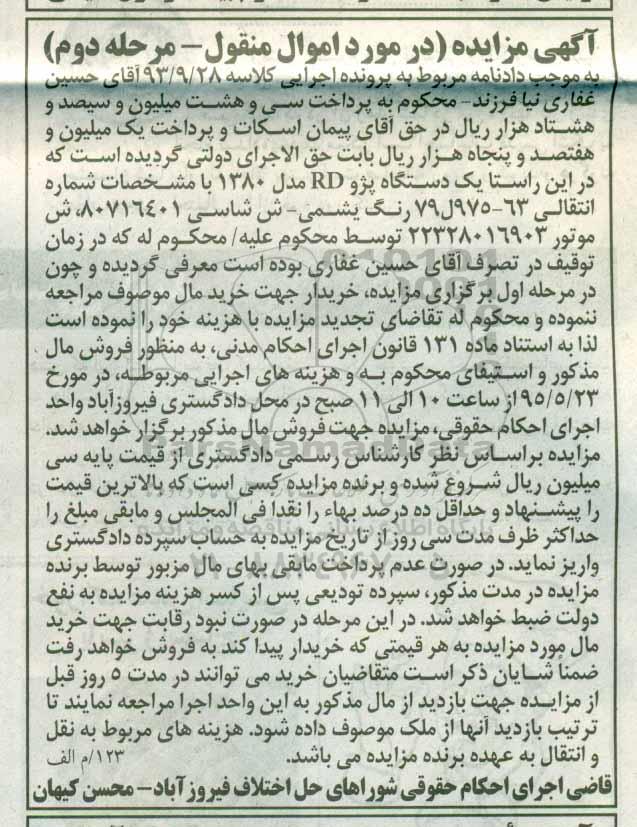 آگهی مزایده (در مورد اموال منقول - مرحله دوم)
به موجب دادنامه مربوط به پرونده اجرایی کلاسه ۹۳/۹/۲۸ آقای حسین
غفاری نیا فرزند- محکوم به پرداخت سی و هشت میلیون و سیصد و
هشتاد هزار ریال در حق آقای پیمان اسکات و پرداخت یک میلیون و
هفتصد و پنجاه هزار ریال بابت حق الاجرای دولتی گردیده است که
در این راستا یک دستگاه پژو RD مدل ۱۳۸۰ با مشخصات شماره
انتقالی ۶۳-۹۷۵ل۷۹ رنگ یشمی- ش شاسی ۸۰۷۱۶۴۰۱، ش
موتور ۲۲۳۲۸۰۱۶۹۰۳ توسط محکوم علیه/ محکوم له که در زمان
توقیف در تصرف آقای حسین غفاری بوده است معرفی گردیده و چون
در مرحله اول برگزاری مزایده، خریدار جهت خرید مال موصوف مراجعه
ننموده و محکوم له تقاضای تجدید مزایده با هزینه خود را نموده است
لذا به استناد ماده ۱۳۱ قانون اجرای احکام مدنی، به منظور فروش مال
مذکور و استیفای محکوم به و هزینه های اجرایی مربوطه، در مورخ
۹۵/۵/۲۳ از ساعت ۱۰ الی ۱۱ صبح در محل دادگستری فیروزآباد واحد
اجرای احکام حقوقی، مزایده جهت فروش مال مذکور برگزار خواهد شد.
مزایده براساس نظر کارشناس رسمی دادگستری از قیمت پایه سی
میلیون ریال شروع شده و برنده مزایده کسی است که بالاترین قیمت
را پیشنهاد و حداقل ده درصد بهاء را نقدا فی المجلس و مابقی مبلغ را
حداکثر ظرف مدت سی روز از تاریخ مزایده به حساب سپرده دادگستری
واریز نماید. در صورت عدم پرداخت مابقی بهای مال مزبور توسط برنده
مزایده در مدت مذکور، سپرده تودیعی پس از کسر هزینه مزایده به نفع
دولت ضبط خواهد شد. در این مرحله در صورت نبود رقابت جهت خرید
مال مورد مزایده به هر قیمتی که خریدار پیدا کند به فروش خواهد رفت
ضمناً شایان ذکر است متقاضیان خرید می توانند در مدت ۵ روز قبل
از مزایده جهت بازدید از مال مذکور به این واحد اجرا مراجعه نمایند تا
ترتیب بازدید آنها از ملک موصوف داده شود. هزینه های مربوط به نقل
و انتقال به عهده برنده مزایده می باشد. ۱۲۳/م الف
قاضی اجرای احکام حقوقی شوراهای حل اختلاف فیروزآباد - محسن کیهان